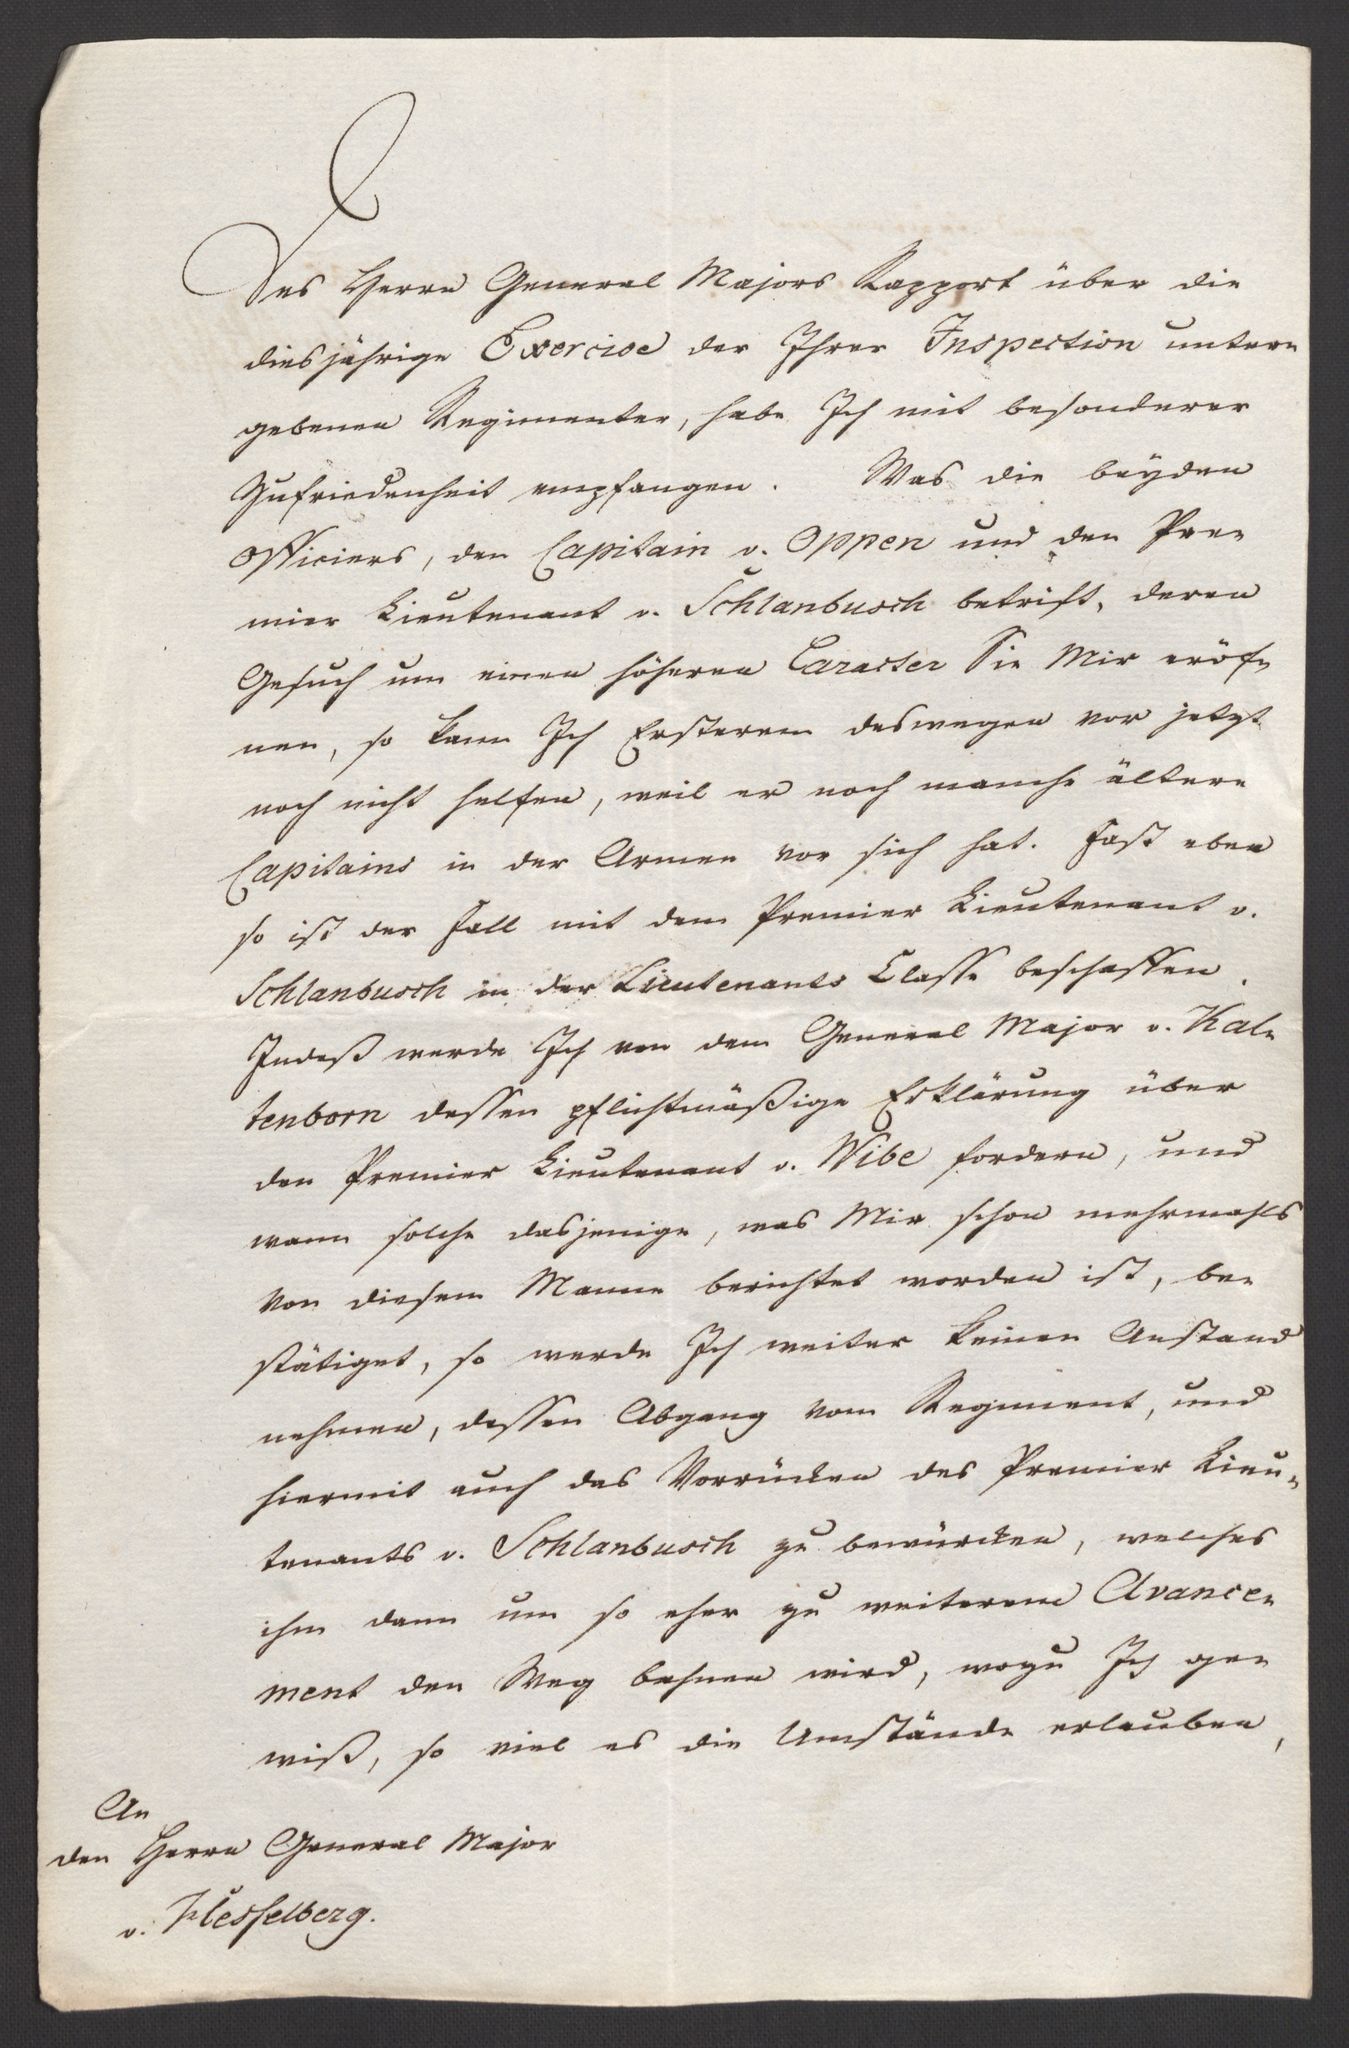 Des Herrn General Majors Rapport über die
diesjährige Exercise der Ihrer Inspection unter-
gebenen Regimenter, habe Ich mit besonderer
Zufriedenheit empfangen. Was die beyden
Officiers, den Capitain v. Oppen und den Pre-
mier Lieutenant v. Schlanbusch betrift, deren
Gesuch um einen höheren Caracter Sie Mir eröf-
nen, so kann Ich Ersterem deswegen vor jetzt
noch nicht helfen, weil er noch manche ältere
Capitains in der Armee vor sich hat. Fast eben
so ist der Fall mit dem Premier Lieutenant v.
Schlanbusch in der Lieutenants Classe beschaffen.
Indeß werde Ich von dem General Major v. Kal-
tenborn dessen pflichtmäßige Erklärung über
den Premier Lieutenant v. Wibe fordern, und
wann solche dasjenige, was Mir schon mehrmahls
von diesem Manne berichtet worden ist, be-
stätiget, so werde Ich weiter keinen Anstand
nehmen, dessen Abgang vom Regiment, und
hiermit auch das Vorrücken des Premier Lieu-
tenants v. Schlanbusch zu bewürcken, welches
ihm dann um so eher zu weiterem Avance-
ment den Weg bahnen wird, wozu Ich ge-
wiß, so viel es die Umstände erlauben,
An
den Herrn General Major
v. Hesselberg.